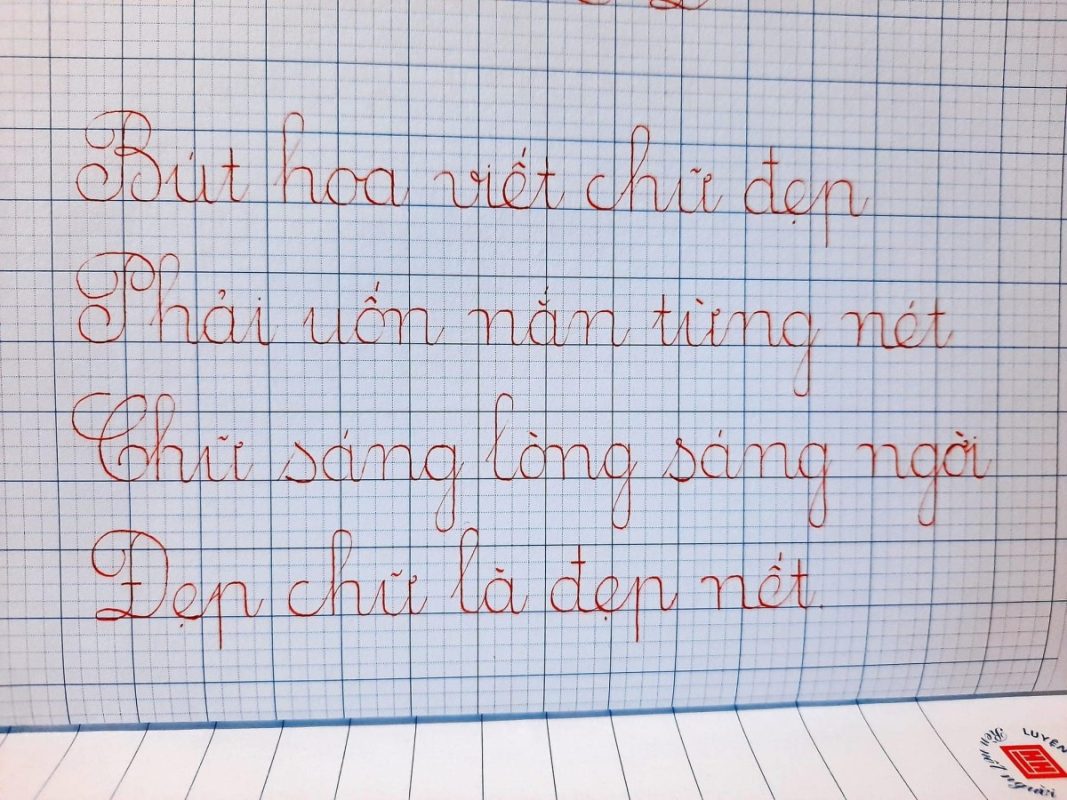 Bút hoa viết chữ đẹp
Phải uốn nắn từng nét
Chữ sáng lòng sáng ngời
Đẹp chữ là đẹp nết.
LUYỆN
Rèn
người
HH